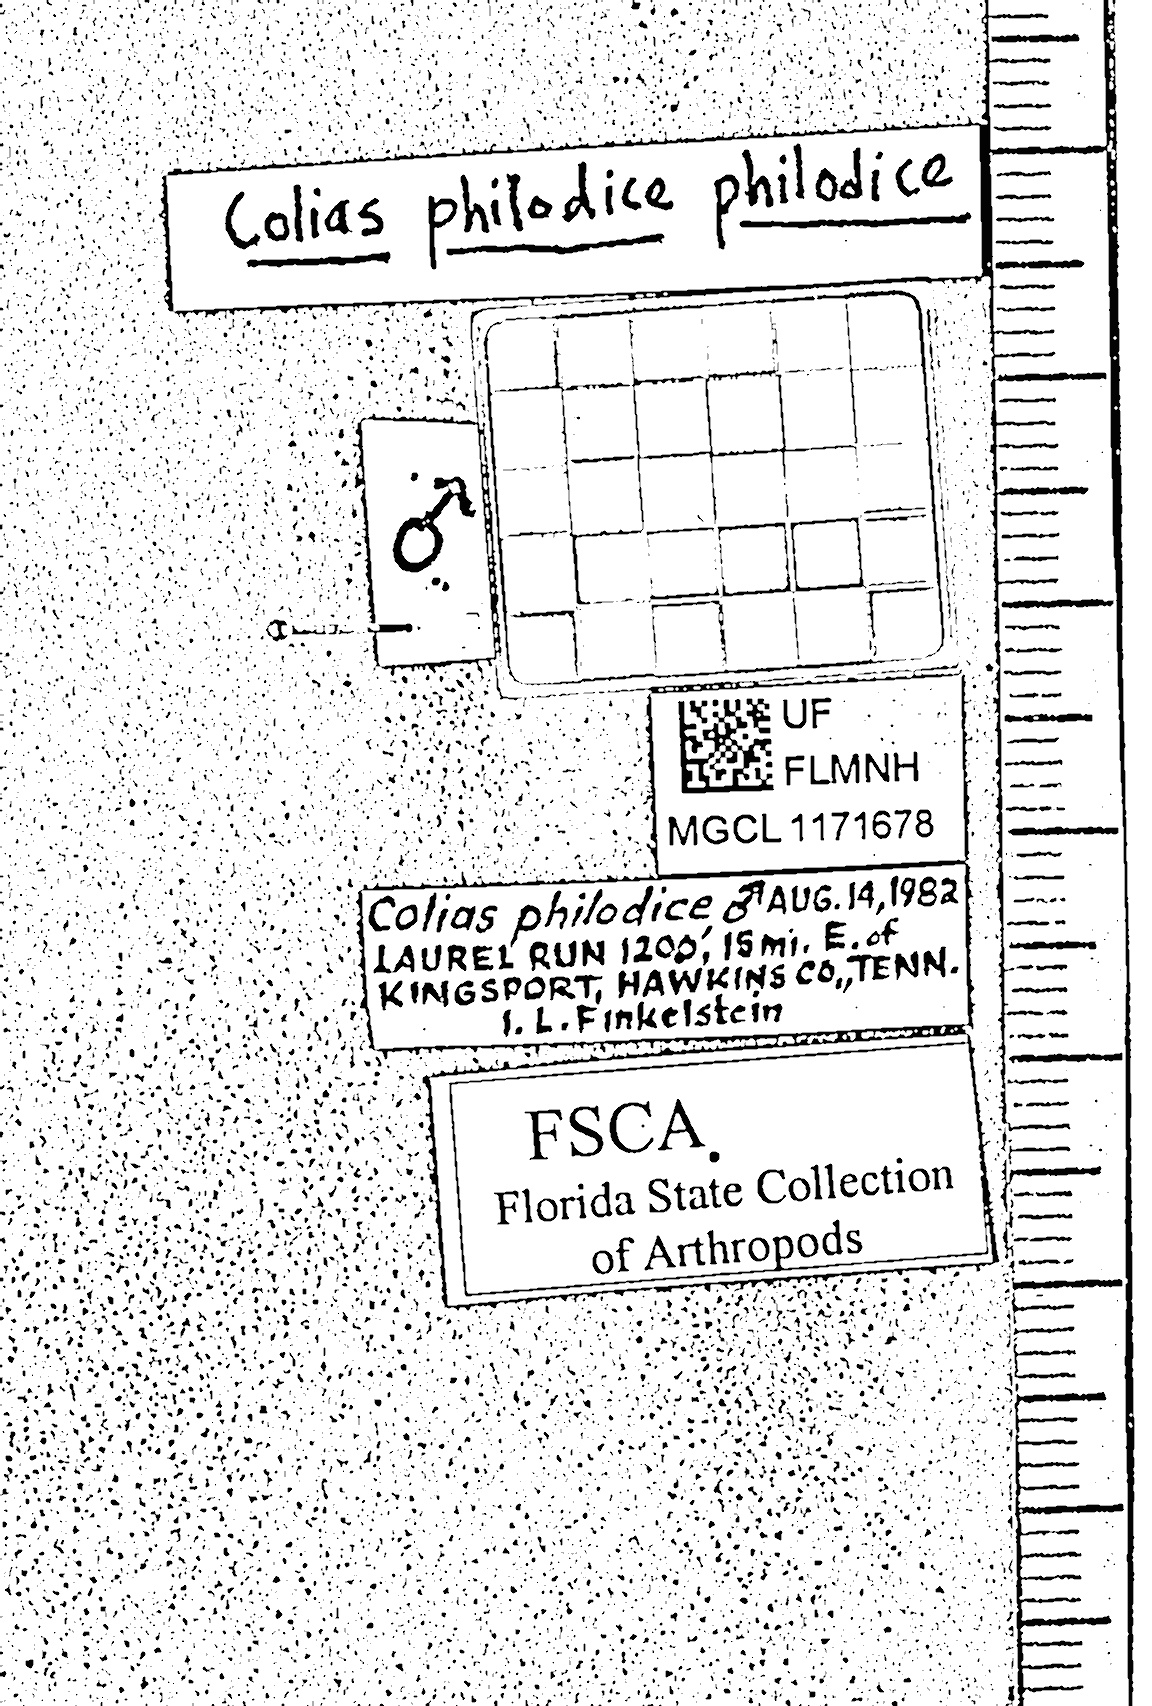 Colias philodice philodice
♂
UF
FLMNH
MGCL 1171678
Colias philodice ♂ AUG. 14, 1982
LAUREL RUN 1200', 15 mi. E. of
KINGSPORT, HAWKINS CO., TENN.
I. L. Finkelstein
FSCA
Florida State Collection
of Arthropods